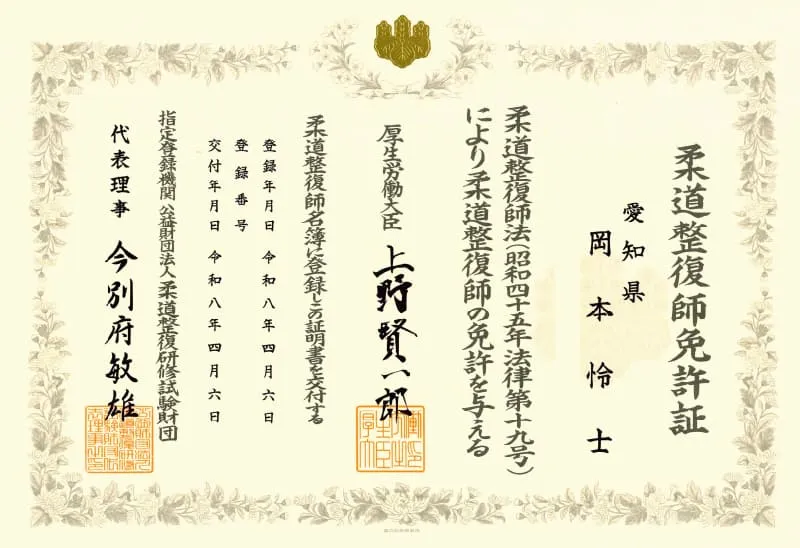 柔道整復師免許証
愛知県
岡本怜士
柔道整復師法(昭和四十五年法律第十九号)
により柔道整復師の免許を与える
厚生労働大臣 上野賢一郎
柔道整復師名簿に登録しこの証明書を交付する
登録年月日 令和八年四月六日
登録番号
交付年月日 令和八年四月六日
指定登録機関 公益財団法人柔道整復研修試験財団
代表理事 今別府敏雄